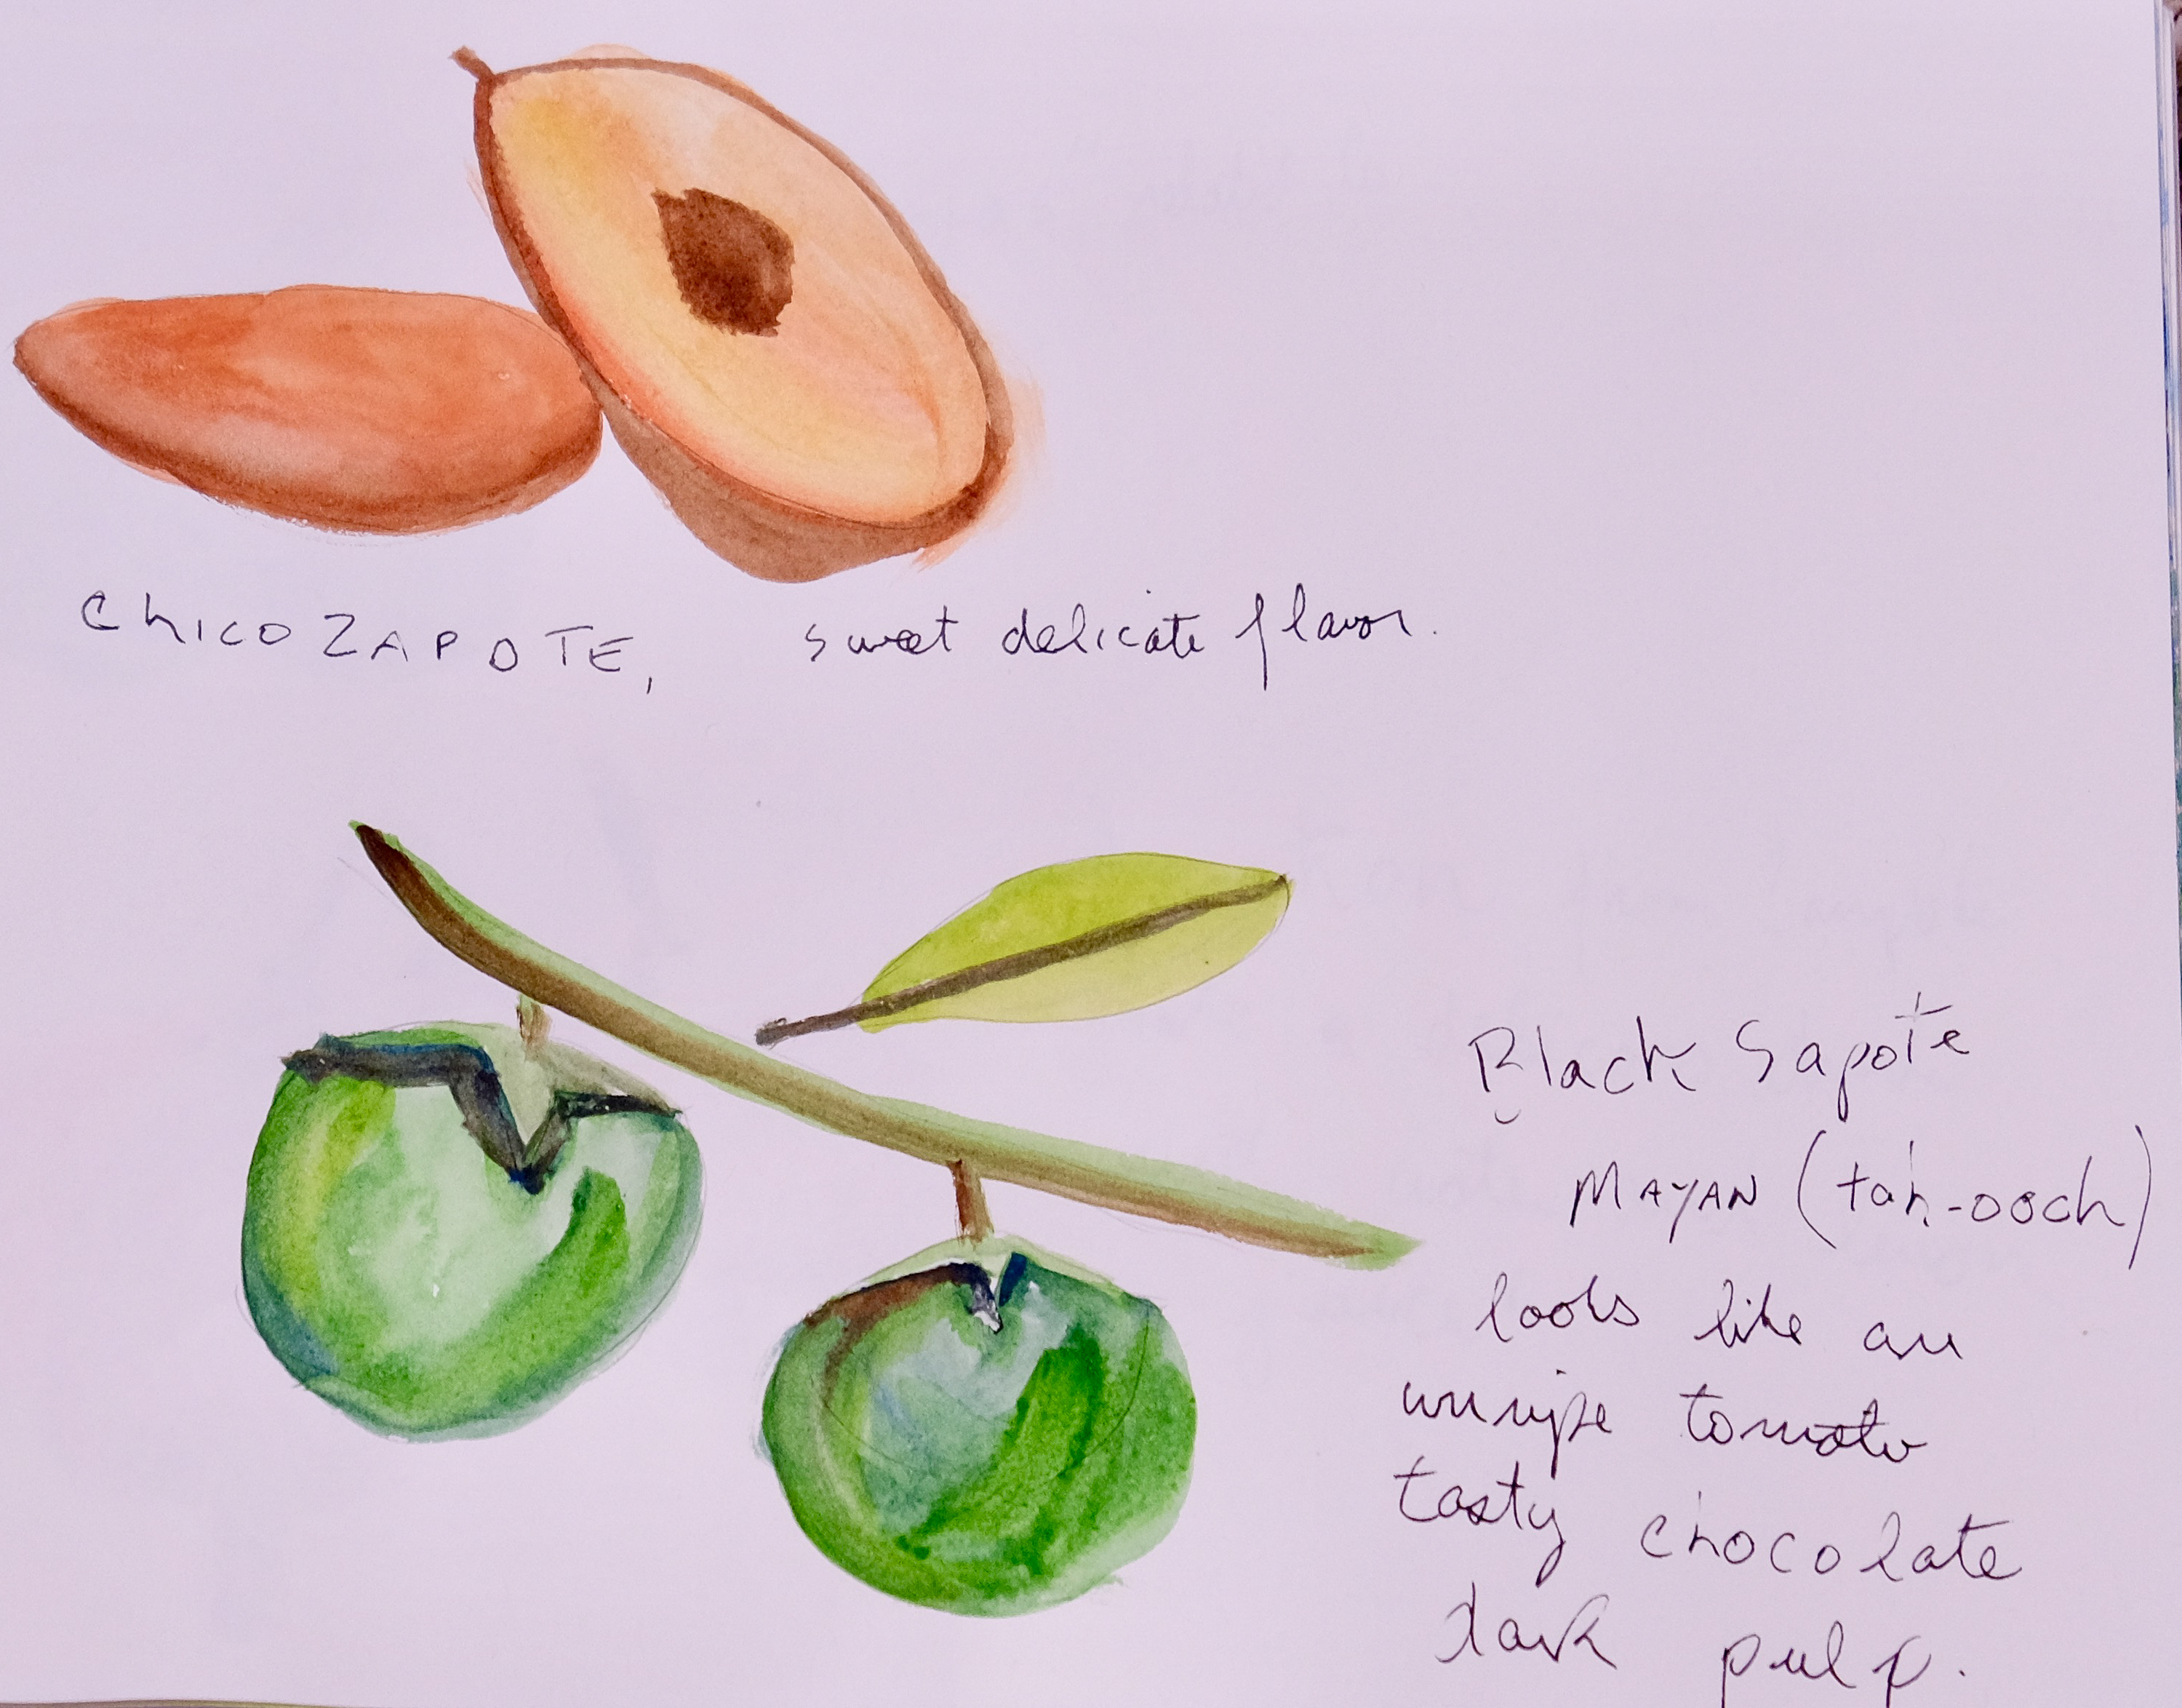 ChICO ZAPOTE, sweet delicate flavor.
Black Sapote
MAYAN (tah-ooch)
looks like an
unripe tomato
tasty chocolate
dark pulp.